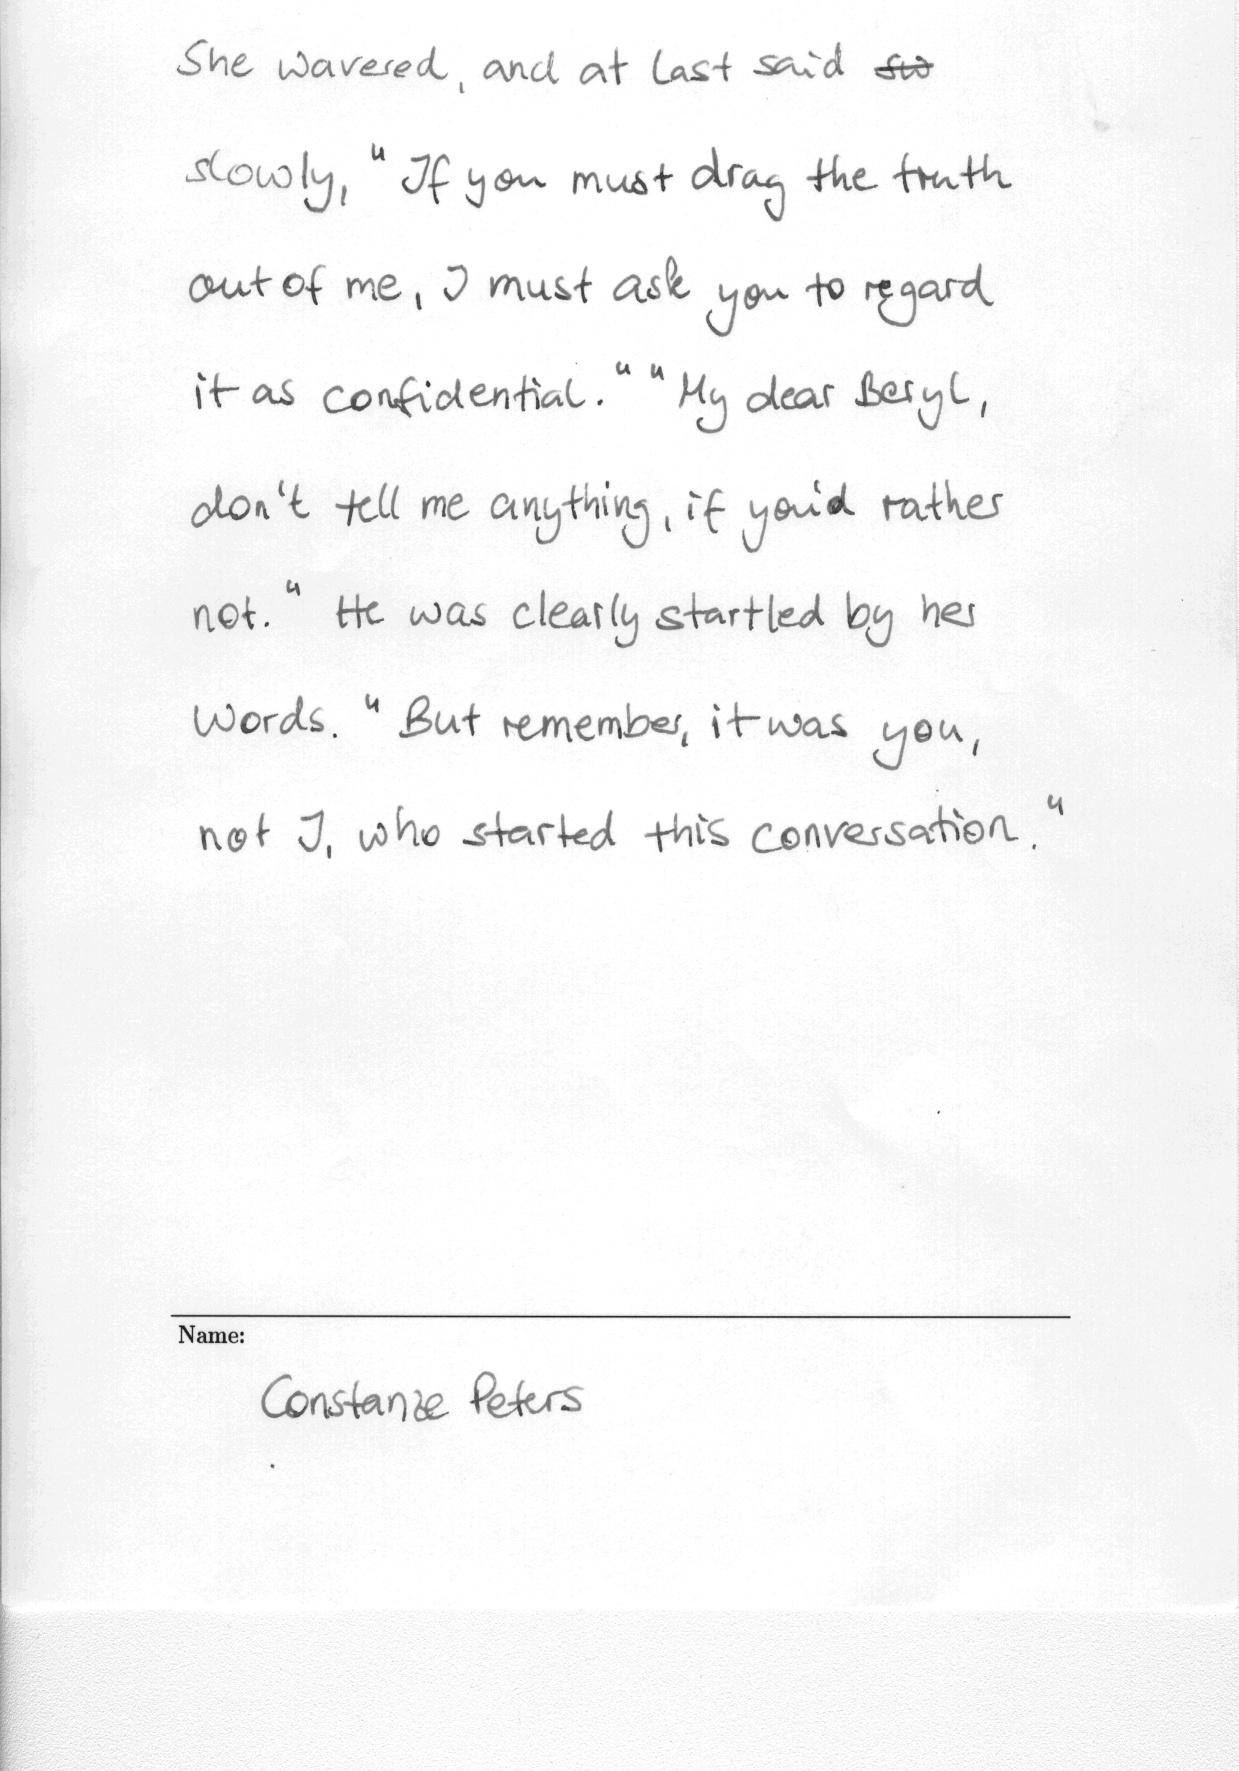 She wavered, and at last said
slowly, "If you must drag the truth
out of me, I must ask you to regard
it as confidential." "My dear Beryl,
don't tell me anything, if you'd rather
not." He was clearly startled by her
words. "But remember, it was you,
not I, who started this conversation."
Name:
Constanze Peters